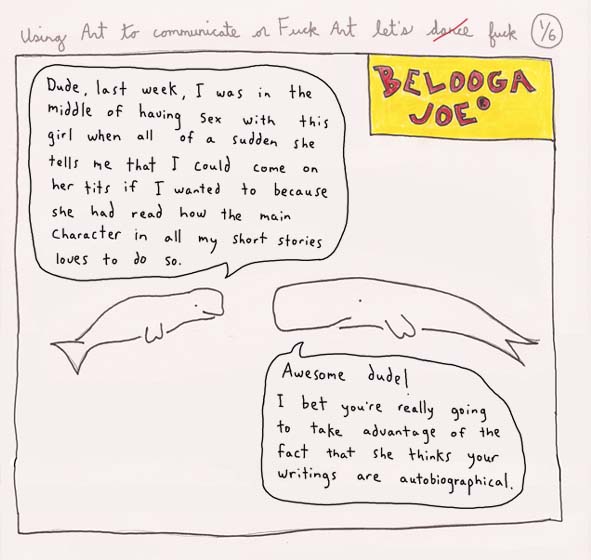 Using Art to communicate or Fuck Art let's dance fuck 1/6
BELOOGA
JOE®
Dude, last week, I was in the
middle of having sex with this
girl when all of a sudden she
tells me that I could come on
her tits if I wanted to because
she had read how the main
character in all my short stories
loves to do so.
Awesome dude!
I bet you're really going
to take advantage of the
fact that she thinks your
writings are autobiographical.